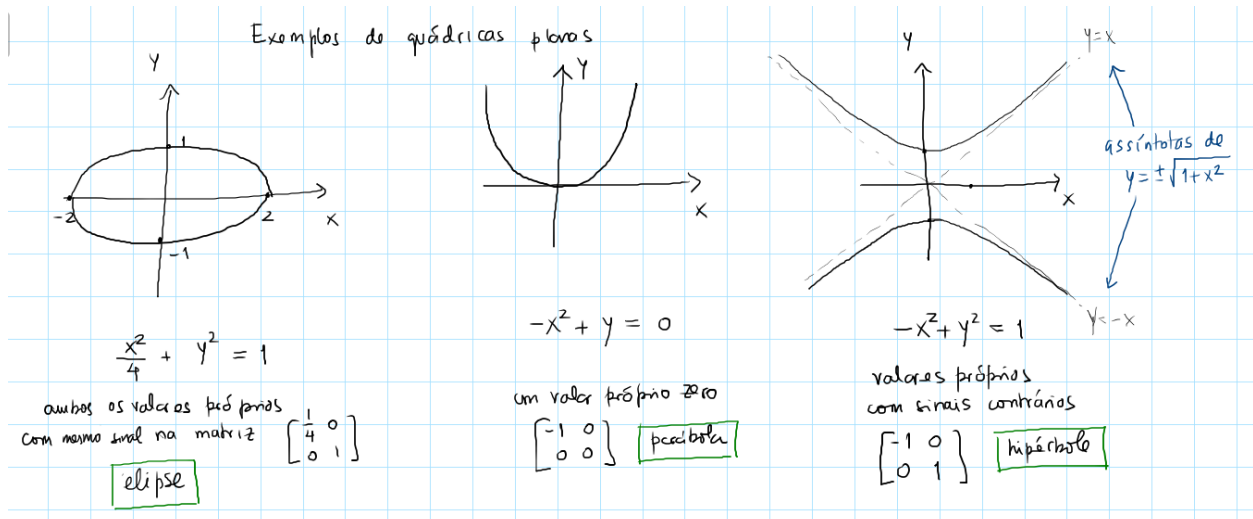 Exemplos de quádricas planas
y
1
-2
2
x
-1
x²/4 + y² = 1
ambos os valores próprios
com mesmo sinal na matriz [1/4 0; 0 1]
elipse
y
x
-x² + y = 0
um valor próprio zero
[-1 0; 0 0]
parábola
y
y=x
x
assíntotas de
y = ±√(1+x²)
y=-x
-x² + y² = 1
valores próprios
com sinais contrários
[-1 0; 0 1]
hipérbole